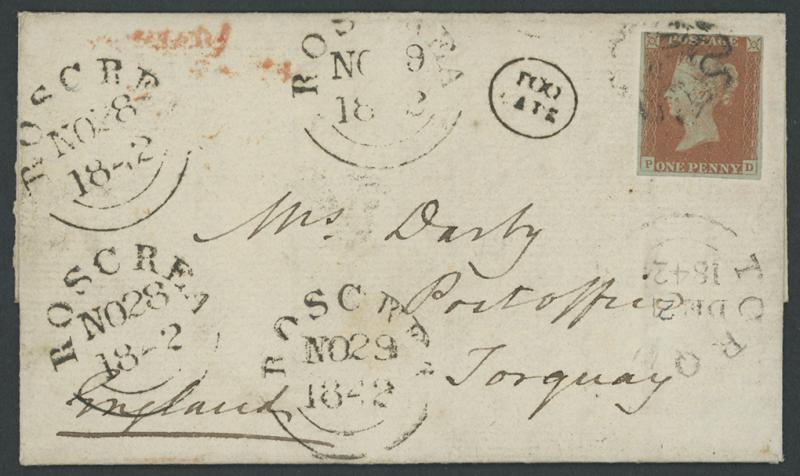 ROSCREA
NO 28
1842
ROSCREA
NO 9
18 2
TOO
LATE
POSTAGE
P ONE PENNY D
Mrs Darby
Post office
Torquay
England
ROSCREA
NO 28
1842
ROSCREA
NO 29
1842
TORQ
DE
1842